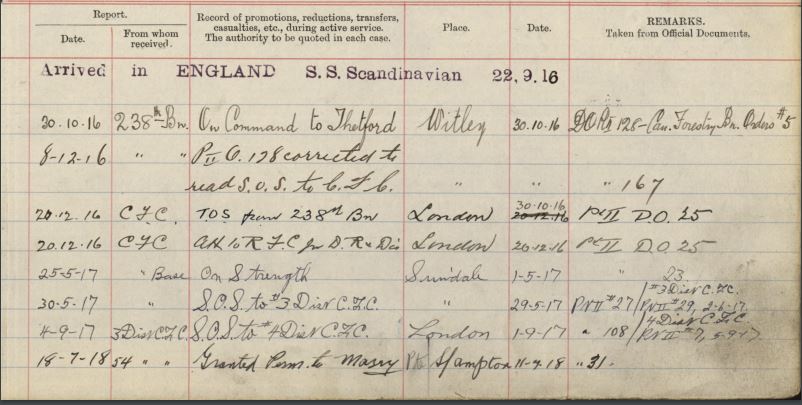 Report.
Record of promotions, reductions, transfers,
casualties, etc., during active service.
The authority to be quoted in each case.
Place.
Date.
REMARKS.
Taken from Official Documents.
Date.
From whom
received.
Arrived in ENGLAND S.S. Scandinavian 22.9.16
30.10.16 238th Bn. On Command to Thetford Witley 30.10.16 128 - Can. Forestry Bn. Orders #5
8-12-16 " " Pt II O. 128 corrected to
read S.O.S. to C.F.C. " " " 167
30.10.16
20.12.16 C.F.C. T.O.S from 238th Bn London 20.12.16 Pt II D.O. 25
20.12.16 C.F.C. Att to R.F.C. for D. R. & Dis London 20-12-16 Pt II D.O. 25
25-5-17 " Base On Strength 1-5-17 " 23.
#3 Dist C.F.C.
30-5-17 " S.O.S. to #3 Dist C.F.C. " 29-5-17 Pt II #27 / Pt II #29, 2-6-17.
4 Dist C.F.C
4-9-17 3 Dist C.F.C. S.O.S. to #4 Dist C.F.C. London 1-9-17 " 108 / Pt II #7, 5-9-17.
18-7-18 54 " " Granted Perm. to Marry S'hampton 11-7-18 " 31.